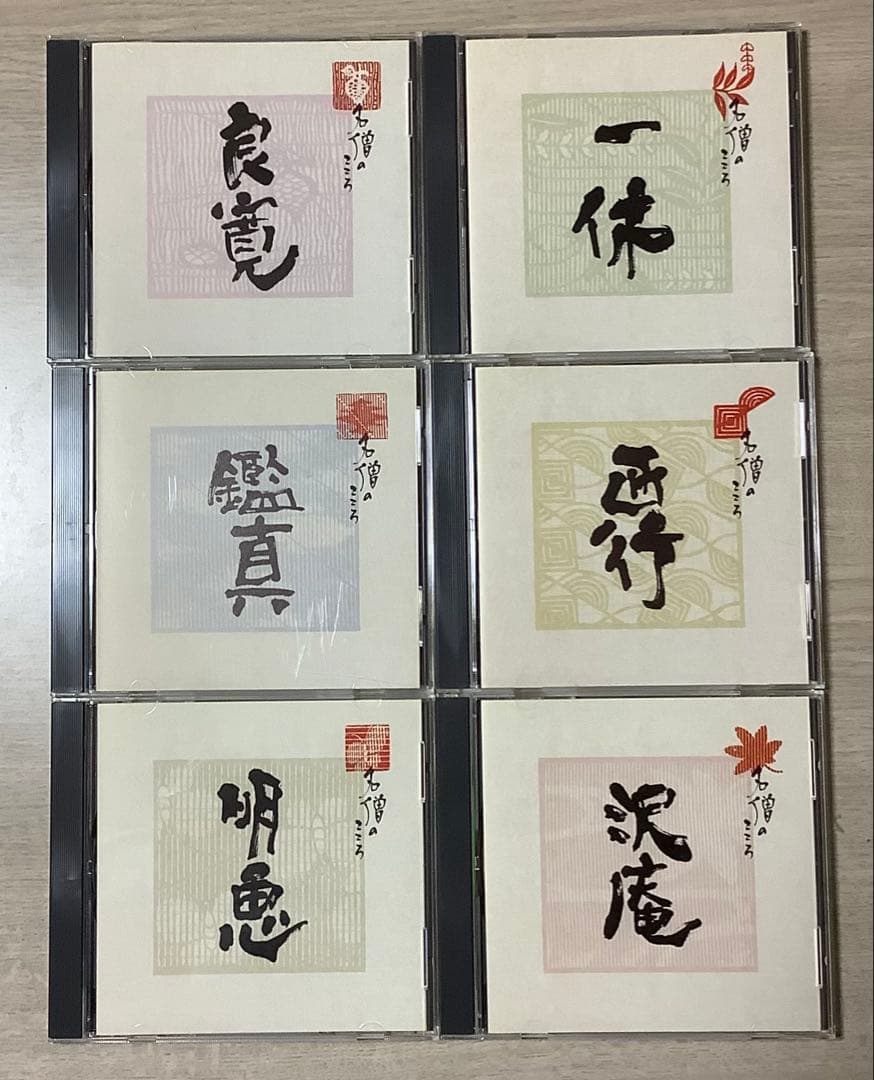 良寛
名僧の
こころ
一休
名僧の
こころ
鑑真
名僧の
こころ
西行
名僧の
こころ
明恵
名僧の
こころ
沢庵
名僧の
こころ